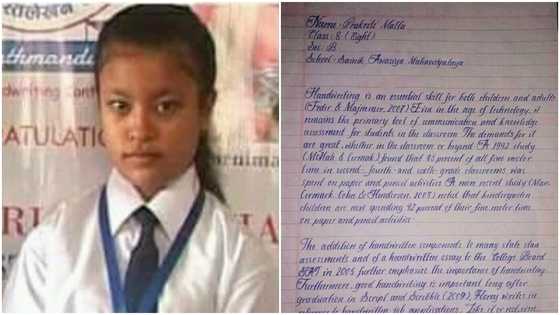 स्तलेखन
athmandu
dwriting Cont
ATULATI
Name:- Prakriti Malla
Class:- 8 (Eight)
Sec:- B
School:- Sainik Awasiya Mahavidyalaya
Handwriting is an essential skill for both children and adults
Even in the age of technology, it
remains the primary tool of communication and knowledge
assessment for students in the classroom. The demands for it
are great, whether in the classroom or beyond. A 1992 study
found that 85 percent of all fine motor
time in second-, fourth- and sixth- grade classrooms was
spent on paper and pencil activities. A more recent study
2003) noted that kindergarten
children are now spending 42 percent of their fine motor time
on paper and pencil activities.
The addition of handwritten components to many state
assessments and of a handwritten essay to the College Board
SAT in 2005 further emphasize the importance of handwriting.
Furthermore, good handwriting is important long after
graduation. in